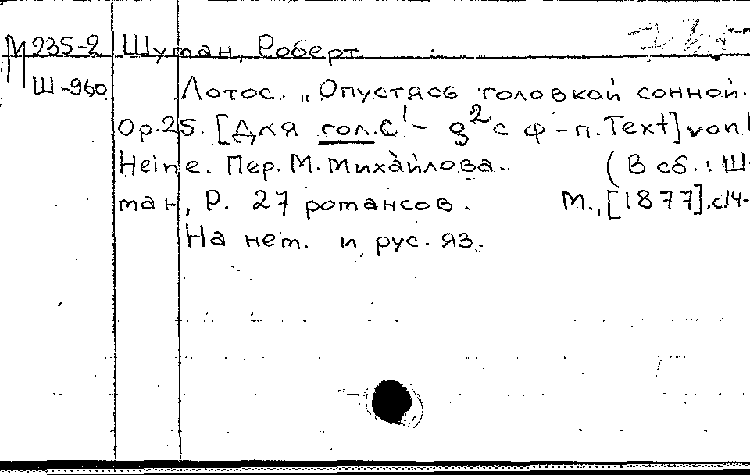 М 235-2 Шуман, Роберт
Ш-960 Лотос. „Опустясь головкой сонной.
Op.25. [Для гол. c¹ – g² с ф-п. Text] von
Heine. Пер. М. Михайлова. (В сб.: Шу-
ман, Р. 27 романсов. М., [1877]. с14-
На нем. и рус. яз.